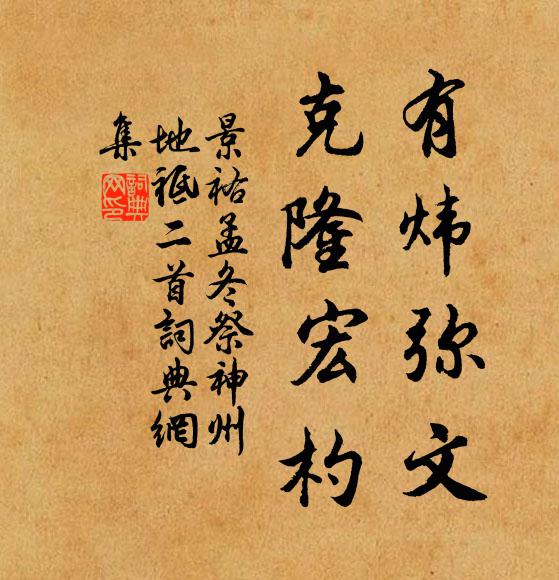 有炜弥文
克隆宏杓
景祐孟冬祭神州
地祗二首詞典網
集
詞典網印